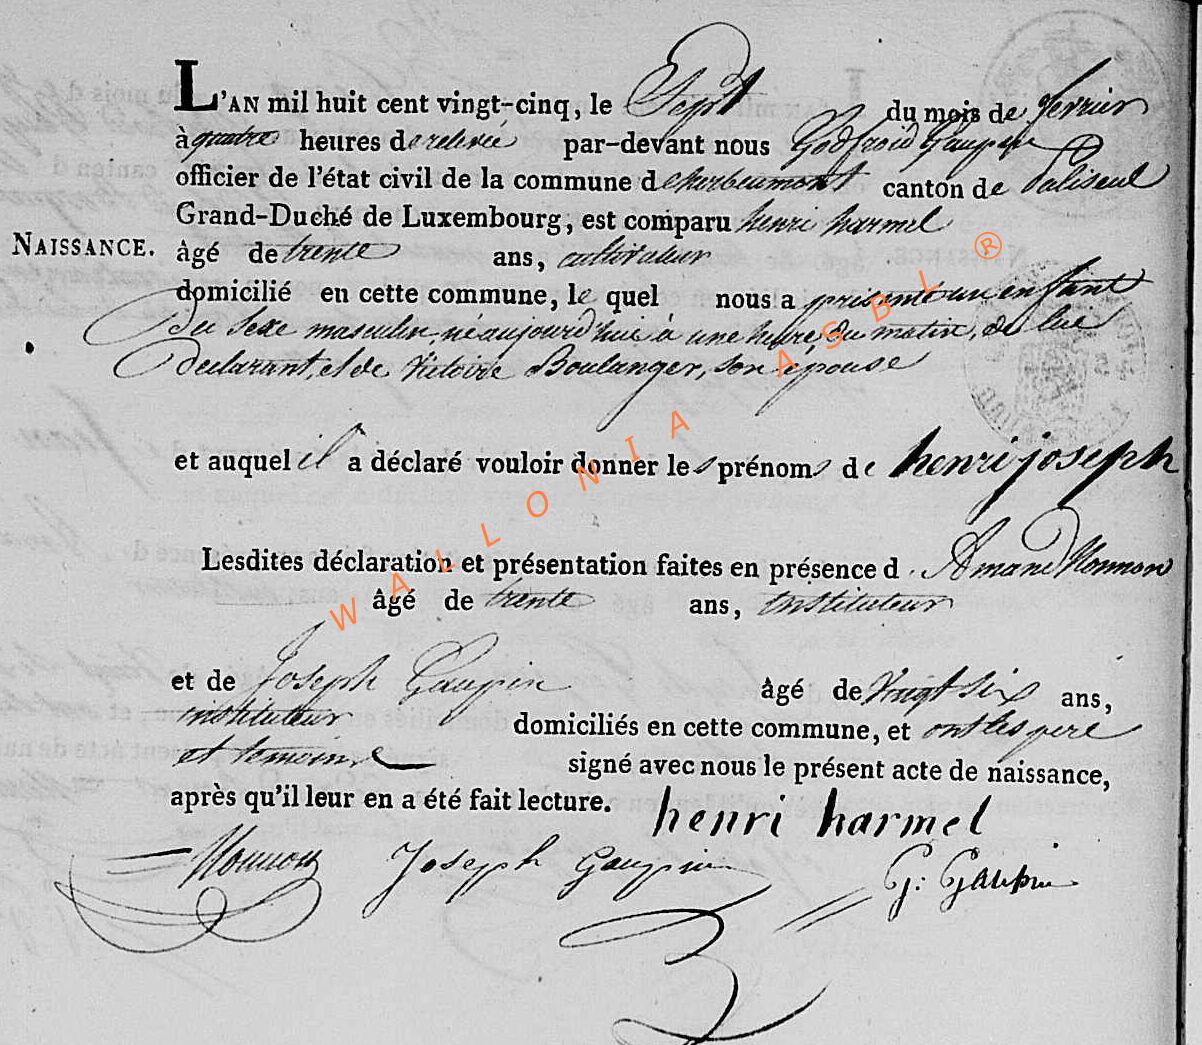 L'AN mil huit cent vingt-cinq, le Sept du mois de fevrier
à quatre heures de relevée par-devant nous Godfroid Gaupin
officier de l'état civil de la commune d'herbeumont canton de Paliseul
Grand-Duché de Luxembourg, est comparu henri harmel
NAISSANCE. âgé de trente ans, cultivateur
domicilié en cette commune, le quel nous a présenté un enfant
du sexe masculin, né aujourd'hui à une heure du matin, de lui
declarant, et de Victoire Boulanger, son épouse
et auquel il a déclaré vouloir donner les prénoms de henri joseph
Lesdites déclaration et présentation faites en présence d. Amand Monmon
âgé de trente ans, instituteur
et de Joseph Gaupin âgé de vingt six ans,
instituteur domiciliés en cette commune, et ont les pere
et temoins signé avec nous le présent acte de naissance,
après qu'il leur en a été fait lecture. henri harmel
Joseph Gaupin G: Gaupin
WALLONIA ASBL ®